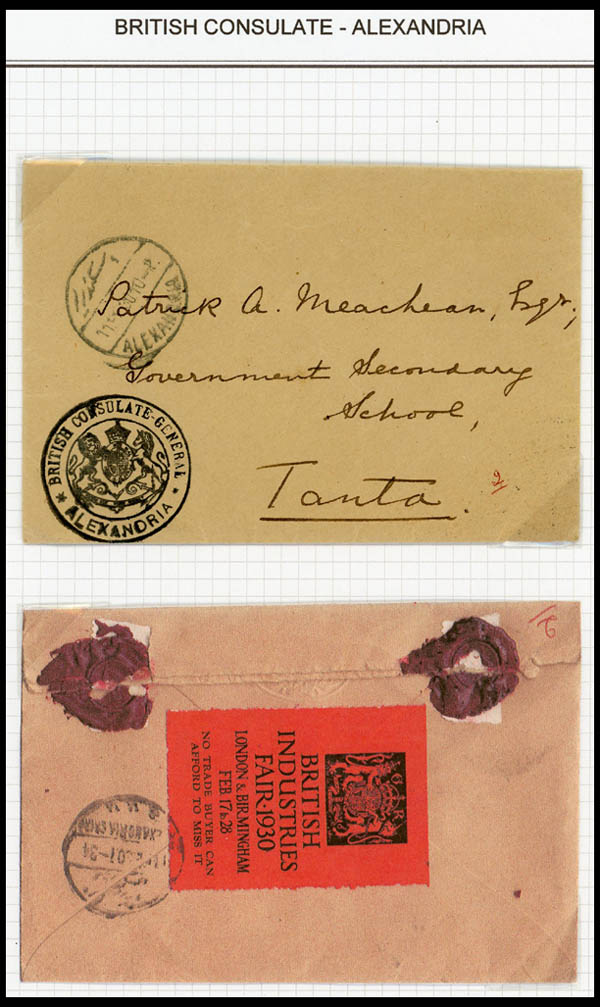 BRITISH CONSULATE - ALEXANDRIA
1
ALEXANDRIA
Patrick A. Meachean, Esqr.,
Government Secondary
School,
Tanta.
2
BRITISH CONSULATE-GENERAL
* ALEXANDRIA *
G R
BRITISH
INDUSTRIES
FAIR·1930
LONDON & BIRMINGHAM
FEB 17 to 28
NO TRADE BUYER CAN
AFFORD TO MISS IT